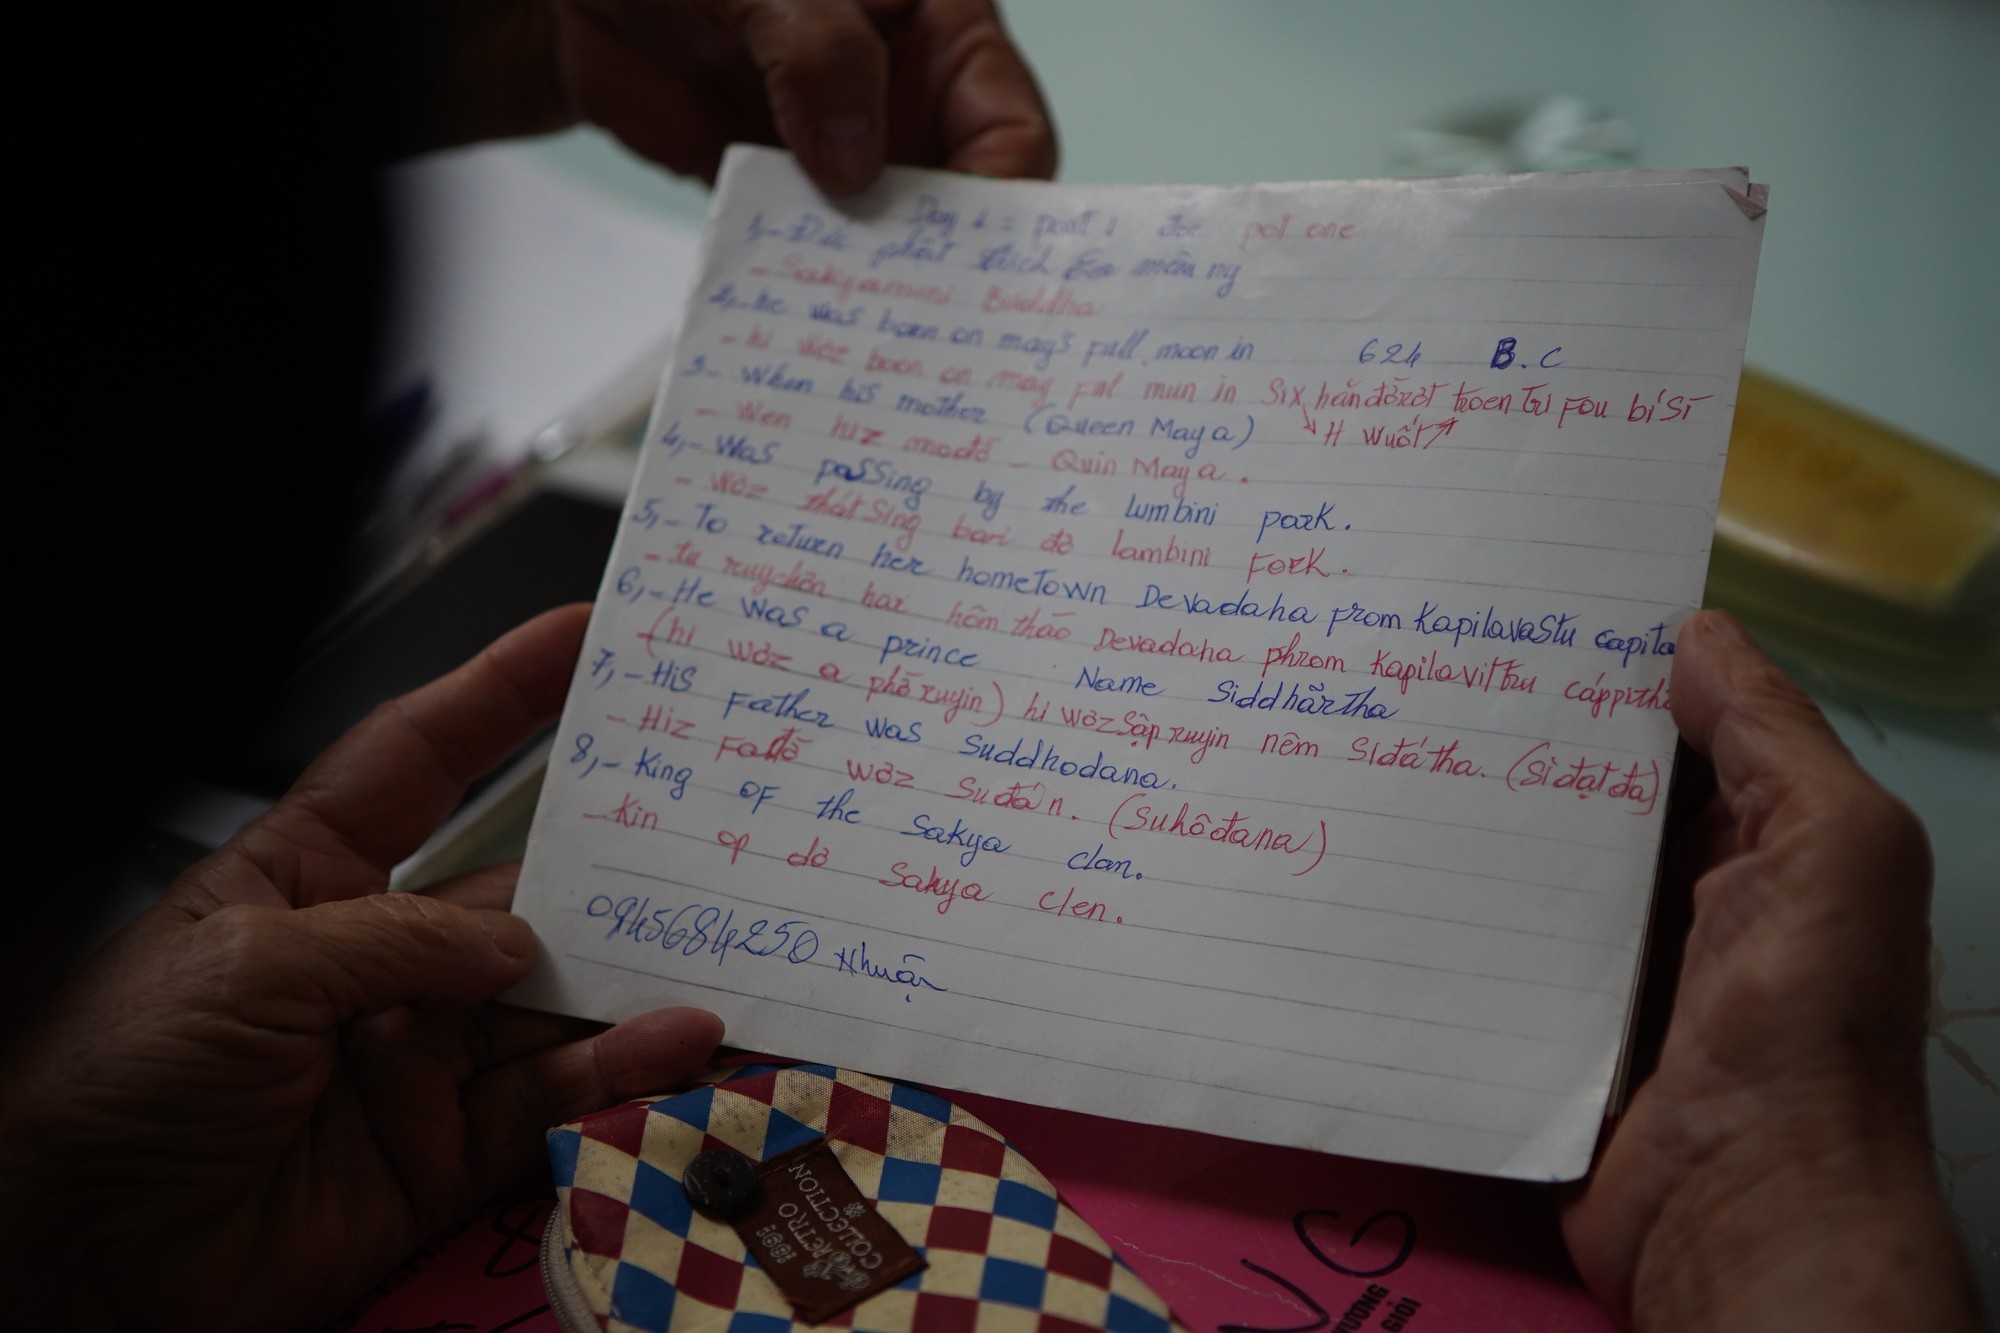 Day 1 = part 1 đọc pat one
1,- Đức phật thích ca mâu ny
- Sakyamuni Buddha
2,- he was born on may's full moon in 624 B.C
- hi wơz boon on may ful mun in Six hănđờrơt troen tri Fou bí Sì
H Wuốt
3- When his mother (Queen Maya)
- Wen hiz mađờ - Quin Maya.
4,- Was passing by the lumbini park.
- wơz thát sing bari đờ lambini Fork.
5,- To return her hometown Devadaha from Kapilavastu capita
- tu ruychơn har hôm tháo Devadaha phrom Kapilavittu cáppith
6,- He was a prince Name Siddhãrtha
- (hi wơz a phờ ruyin) hi wơz sập ruyin nêm Siđátha. (Sì đạt đa)
7,- His Father was Suddhodana.
- Hiz Fađờ wơz Suđán. (Suhôđana)
8,- King of the Sakya clan.
- Kin op dờ Sakya Clen.
0945684250 Nhuận
1991
RETRO
COLLECTION
ƯƠNG
GIỎI